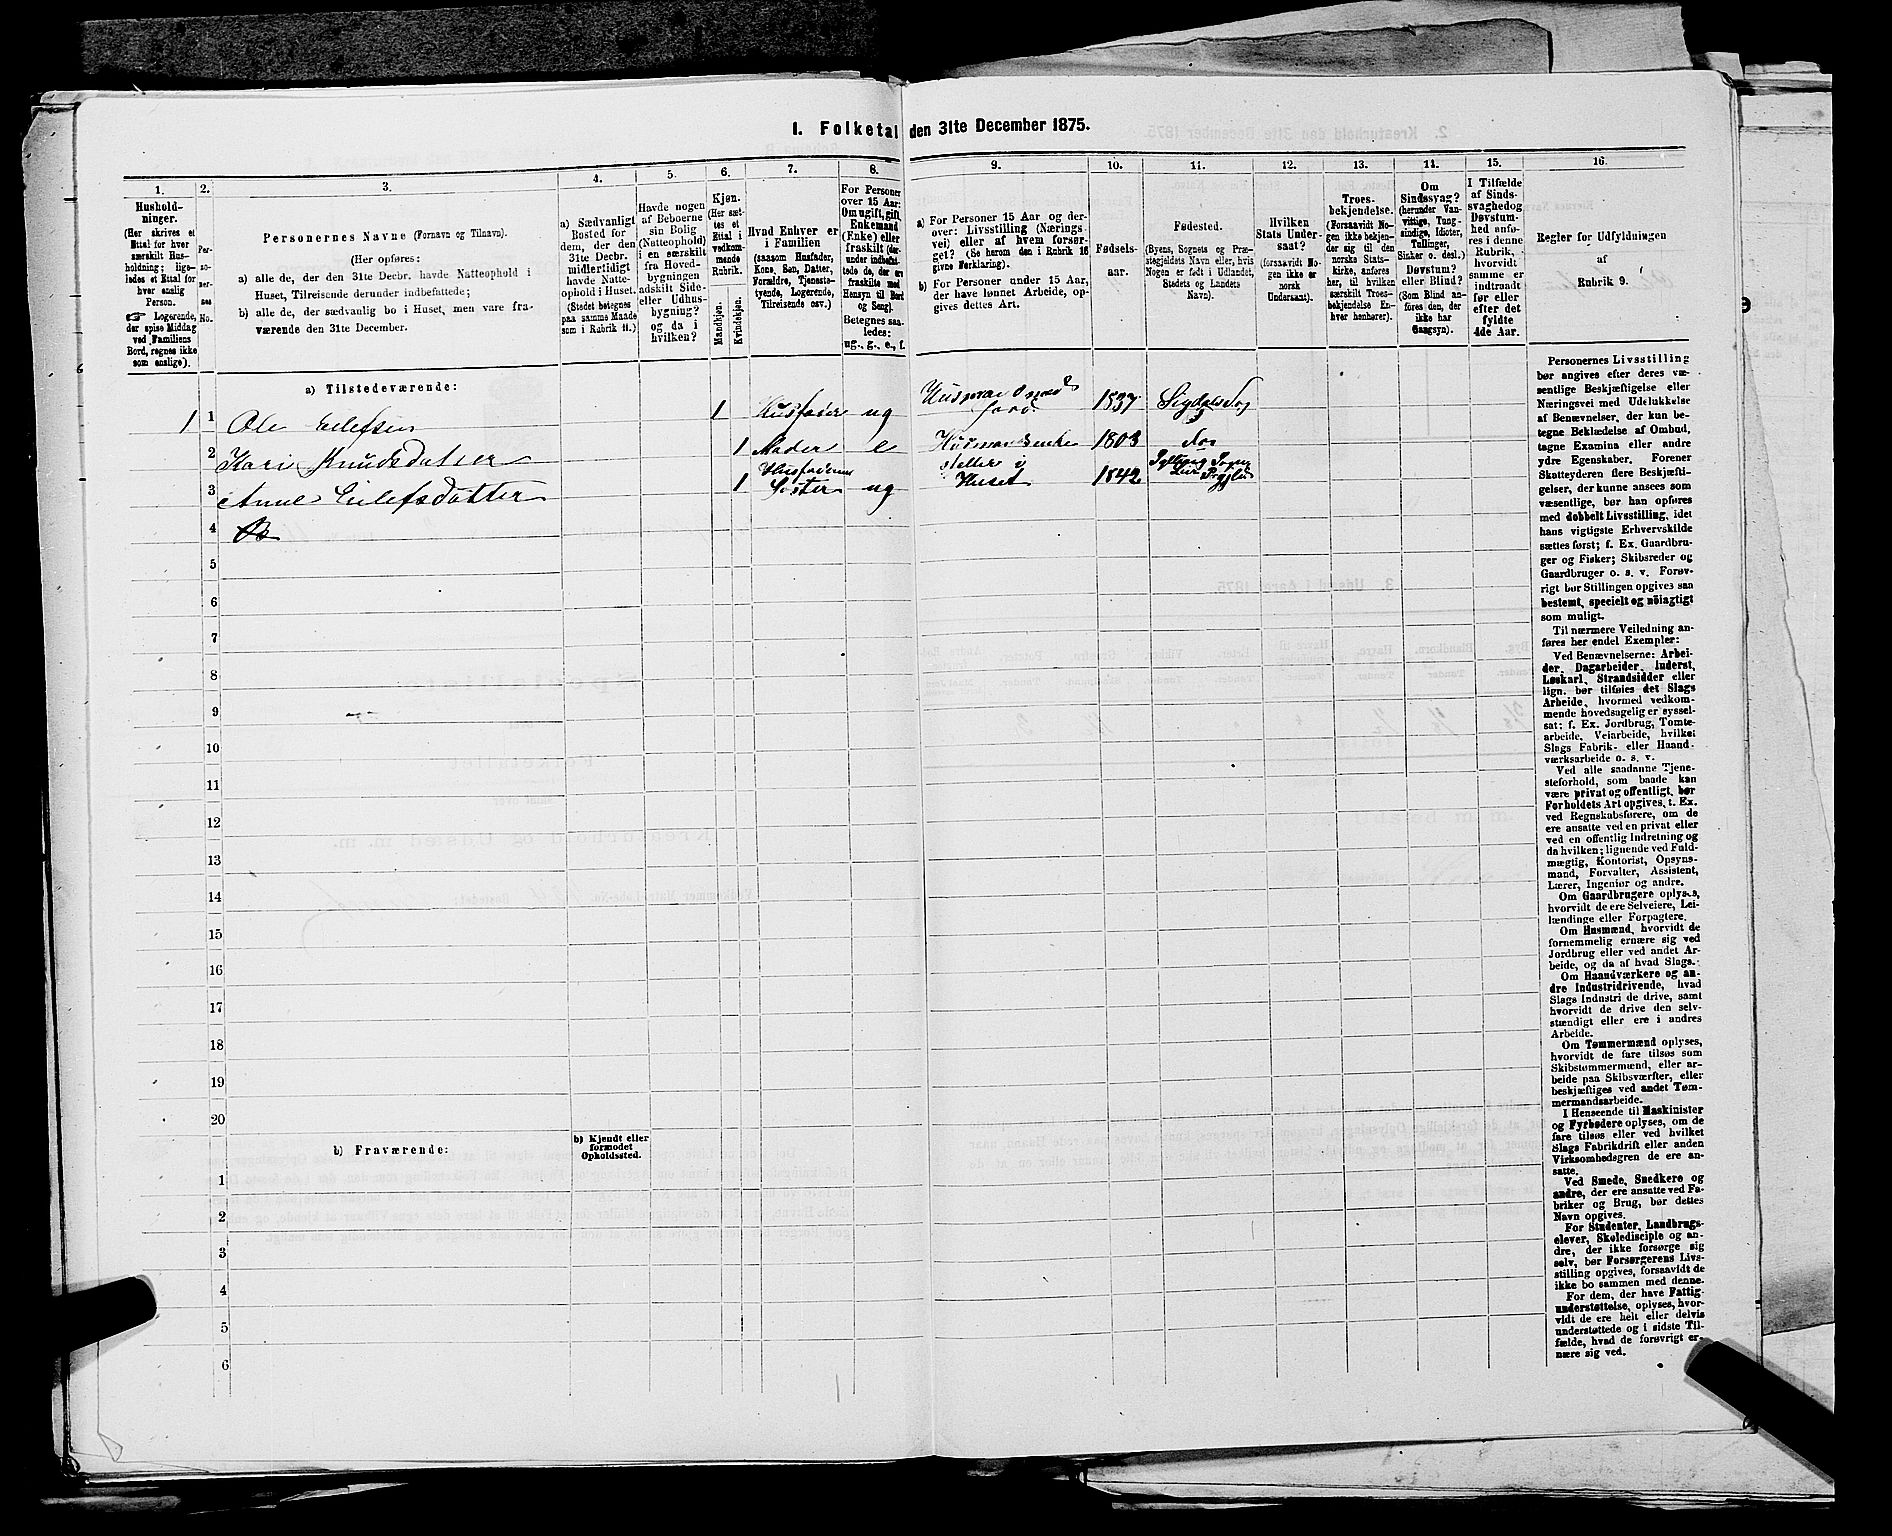 1. Folketal den 31te December 1875.
1.
2.
3.
4.
5.
6.
7.
8.
9.
10.
11.
12.
13.
14.
15.
16.
Hushold-
ninger.
(Her skrives et
Ettal for hver
særskilt Hus-
holdning; lige-
ledes et Ettal for
hver enslig
Person.
☞ Logerende,
der spise Middag
ved Familiens
Bord, regnes ikke
som enslige).
Per-
so-
ner-
nes
No.
Personernes Navne (Fornavn og Tilnavn).
(Her opføres:
a) alle de, der den 31te Decbr. havde Natteophold i
Huset, Tilreisende derunder indbefattede;
b) alle de, der sædvanlig bo i Huset, men vare fra-
værende den 31te December.
a) Sædvanligt
Bosted for
dem, der den
31te Decbr.
midlertidigt
havde Natte-
ophold i Huset.
(Stedet betegnes
paa samme Maade
som i Rubrik 11.)
Havde nogen
af Beboerne
sin Bolig
(Natteophold)
i en særskilt
fra Hoved-
bygningen
adskilt Side-
eller Udhus-
bygning?
og da i
hvilken?
Kjøn.
(Her sæt-
tes et
Ettal i
vedkom-
mende
Rubrik.
Mandkjøn.
Kvindekjøn.
Hvad Enhver er
i Familien
(saasom Husfader,
Kone, Søn, Datter,
Forældre, Tjeneste-
tyende, Logerende,
Tilreisende osv.)
For Personer
over 15 Aar:
Om ugift, gift,
Enkemand
(Enke) eller
fraskilt (der-
under indbefat-
tede de, der ere
fraskilte med
Hensyn til Bord
og Seng).
Betegnes saa-
ledes:
ug., g., e., f.
a) For Personer 15 Aar og der-
over: Livsstilling (Nærings-
vei) eller af hvem forsør-
get? (Se herom den i Rubrik 16
givne Forklaring).
b) For Personer under 15 Aar,
der have lønnet Arbeide, op-
gives dettes Art.
Fødsels-
aar.
Fødested.
(Byens, Sognets og Præ-
stegjeldets Navn eller, hvis
Nogen er født i Udlandet,
Stedets og Landets
Navn).
Hvilken
Stats Under-
saat?
(forsaavidt No-
gen ikke er
norsk
Undersaat).
Troes-
bekjendelse.
(Forsaavidt No-
gen ikke bekjen-
der sig til den
norske Stats-
kirke, anføres
her, til hvilken
særskilt Troes-
bekjendelse En-
hver henhører).
Om
Sindssvag?
(herunder Van-
vittige, Tung-
sindige, Idioter,
Tullinger,
Sinker o. desl.)
Døvstum?
eller Blind?
(Som Blind an-
føres den, der
ikke har
Gangsyn).
I Tilfælde
af Sinds-
svaghed og
Døvstum-
hed anfø-
res i denne
Rubrik,
hvorvidt
samme er
indtraadt
før eller
efter det
fyldte
4de Aar.
Regler for Udfyldningen
af
Rubrik 9.
a) Tilstedeværende:
1 1 Ole Eilefsen 1 Husfader ug Husmand med Jord. 1837 Sigdals
2 Kari Knudsdatter 1 Moder e Husmandsenke 1803
3 Anne Eilefsdatter 1 Husfaderens Søster ug steller i Huset 1842
4
5
6
7
8
9
10
11
12
13
14
15
16
17
18
19
20
b) Fraværende:
b) Kjendt eller
formodet
Opholdssted.
1
2
3
4
5
6
Personernes Livsstilling
bør angives efter deres væ-
sentlige Beskjæftigelse eller
Næringsvei med Udelukkelse
af Benævnelser, der kun be-
tegne Beklædelse af Ombud,
tagne Examina eller andre
ydre Egenskaber. Forener
Skatteyderen flere Beskjæfti-
gelser, der kunne ansees som
væsentlige, bør han opføres
med dobbelt Livsstilling, idet
hans vigtigste Erhvervskilde
sættes først; f. Ex. Gaardbru-
ger og Fisker; Skibsreder og
Gaardbruger o. s. v. Forøv-
rigt bør Stillingen opgives saa
bestemt, specielt og nöiagtigt
som muligt.
Til nærmere Veiledning an-
føres her endel Exempler:
Ved Benævnelserne: Arbei-
der, Dagarbeider, Inderst,
Løskarl, Strandsidder eller
lign. bør tilføies det Slags
Arbeide, hvormed vedkom-
mende hovedsagelig er syssel-
sat; f. Ex. Jordbrug, Tomte-
arbeide, Veiarbeide, hvilket
Slags Fabrik- eller Haand-
værksarbeide o. s. v.
Ved alle saadanne Tjene-
steforhold, som baade kan
være privat og offentligt, bør
Forholdets Art opgives, t. Ex.
ved Regnskabsførere, om de
ere ansatte ved en privat eller
ved en offentlig Indretning og
da hvilken; lignende ved Fuld-
mægtig, Kontorist, Opsyns-
mand, Forvalter, Assistent,
Lærer, Ingeniør og andre.
Om Gaardbrugere oplyses,
hvorvidt de ere Selveiere, Lei-
lændinge eller Forpagtere.
Om Husmænd, hvorvidt de
fornemmelig ernære sig ved
Jordbrug eller ved andet Ar-
beide, og da af hvad Slags.
Om Haandværkere og an-
dre Industridrivende, hvad
Slags Industri de drive, samt
hvorvidt de drive den selv-
stændigt eller ere i andres
Arbeide.
Om Tømmermænd oplyses,
hvorvidt de fare tilsøs som
Skibstømmermænd, eller ar-
beide paa Skibsværfter, eller
beskjæftiges ved andet Tøm-
mermandsarbeide.
I Henseende til Maskinister
og Fyrbødere oplyses, om de
fare tilsøs eller ved hvilket
Slags Fabrikdrift eller anden
Virksomhedsgren de ere an-
satte.
Ved Smede, Snedkere og
andre, der ere ansatte ved Fa-
briker og Brug, bør dettes
Navn opgives.
For Studenter, Landbrugs-
elever, Skoledisciple og an-
dre, der ikke forsørge sig
selv, bør Forsørgerens Livs-
stilling opgives, forsaavidt de
ikke bo sammen med denne.
For dem, der have Fattig-
understøttelse, oplyses, hvor-
vidt de ere helt eller delvis
understøttede og i sidste Til-
fælde, hvad de forøvrigt er-
nære sig ved.